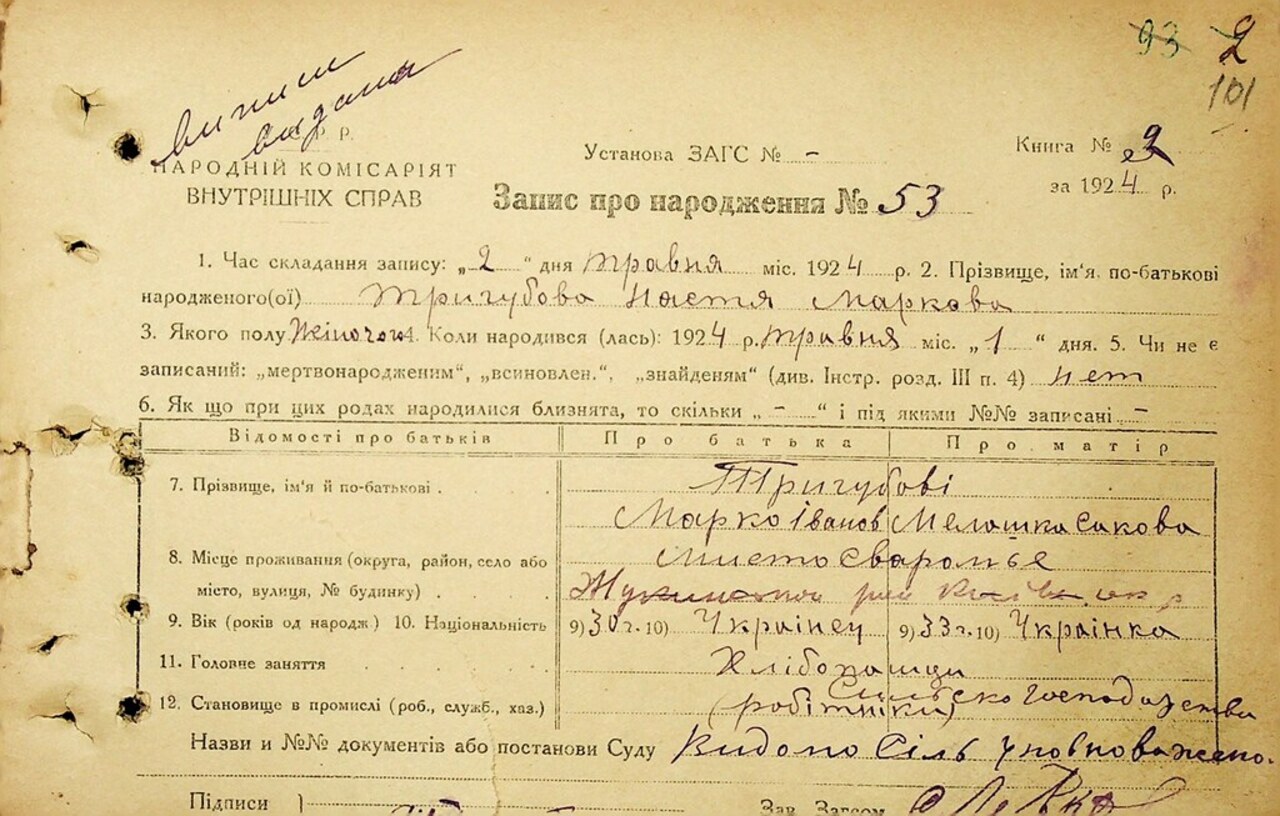 93 2
101
випис
видана
С Р Р.
НАРОДНІЙ КОМІСАРІЯТ
ВНУТРІШНІХ СПРАВ
Установа ЗАГС № -
Книга № 2
за 1924 р.
Запис про народження № 53
1. Час складання запису: „2“ дня травня міс. 1924 р. 2. Прізвище, ім'я. по-батькові
народженого(ої) Тригубова Настя Маркова
3. Якого полу Жіночого 4. Коли народився (лась): 1924 р. травня міс. „1“ дня. 5. Чи не є
записаний: „мертвонародженим“, „всиновлен.“, „знайденям“ (див. Інстр. розд. III п. 4) нет
6. Як що при цих родах народилися близнята, то скільки „-“ і під якими №№ записані -
Відомості про батьків Про батька Про матір
7. Прізвище, ім'я й по-батькові Тригубові
Марко Іванов Мелашка Сакова
8. Місце проживання (округа, район, село або Мисто Сваромьє
місто, вулиця, № будинку)
9. Вік (років од народж) 10. Національність 9) 30 г. 10) Українец 9) 33 г. 10) Українка
11. Головне заняття Хлібопашци
12. Становище в промислі (роб., служб., хаз.) (робітники) Сильско господарства
Назви и №№ документів або постанови Суду Видомо Сіль Уповноважено.
Підписи Зав. Загсом